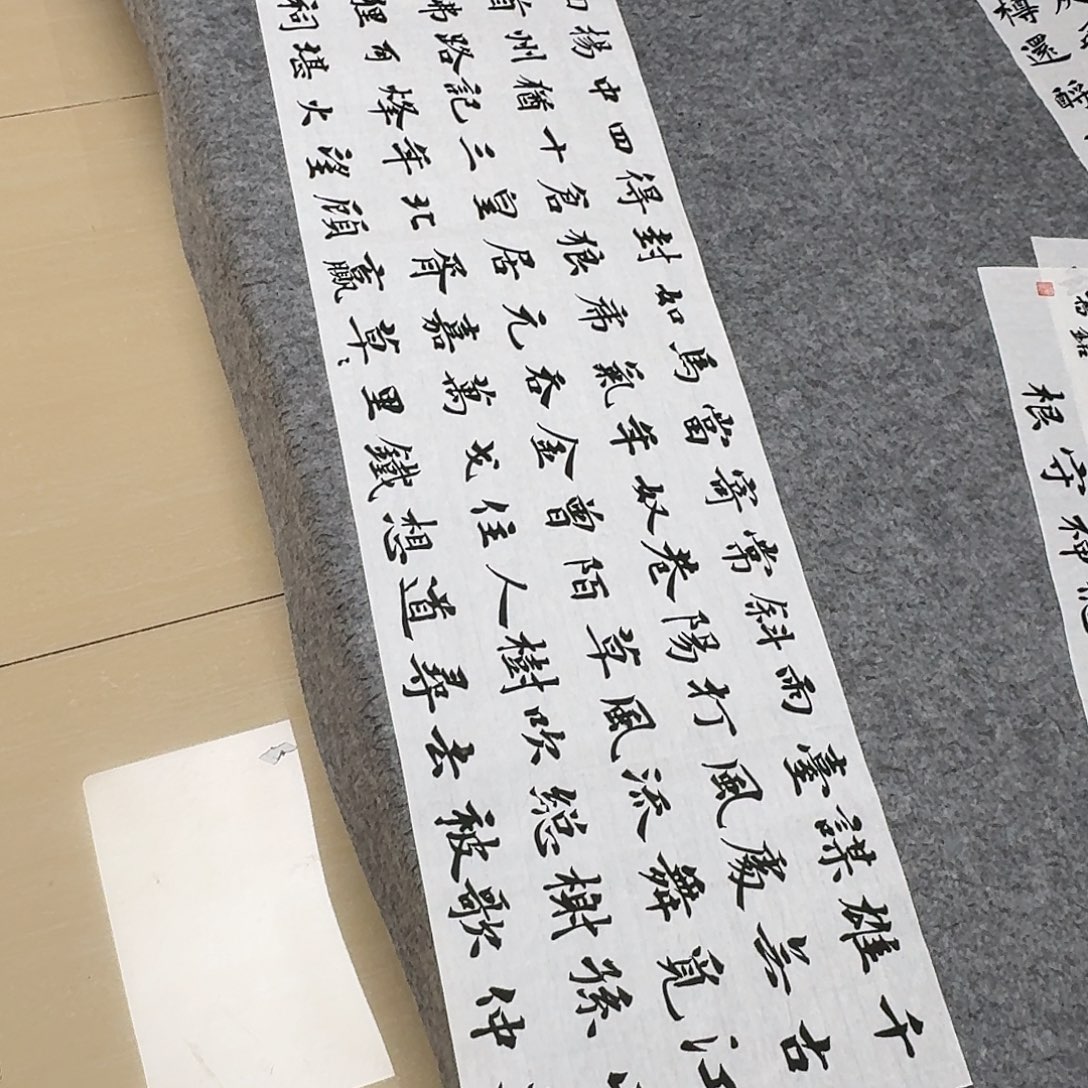 千古江山
雄無覓孫仲
謀處舞榭歌
臺風流總被
雨打風吹去
斜陽草樹尋
常巷陌人道
寄奴曾住想
當年金戈鐵
馬氣吞萬里
如虎元嘉草、
封狼居胥贏
得倉皇北顧
四十三年望
中猶記烽火
揚州路可堪
回首佛狸祠
根守禪